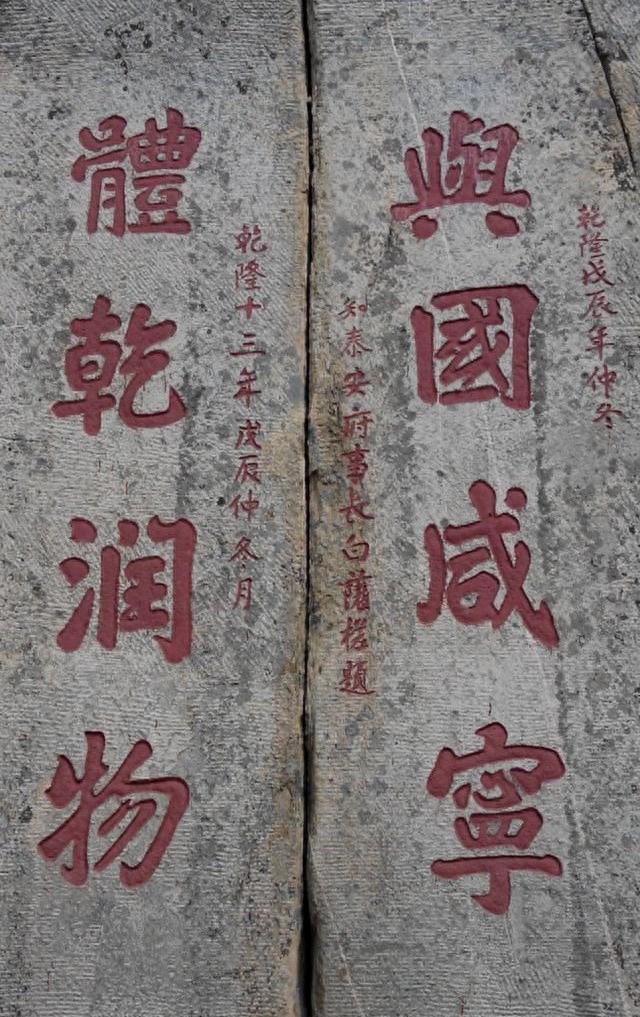 乾隆戊辰年仲冬
與國咸寧
知泰安府事長白題
乾隆十三年戊辰仲冬月
體乾润物